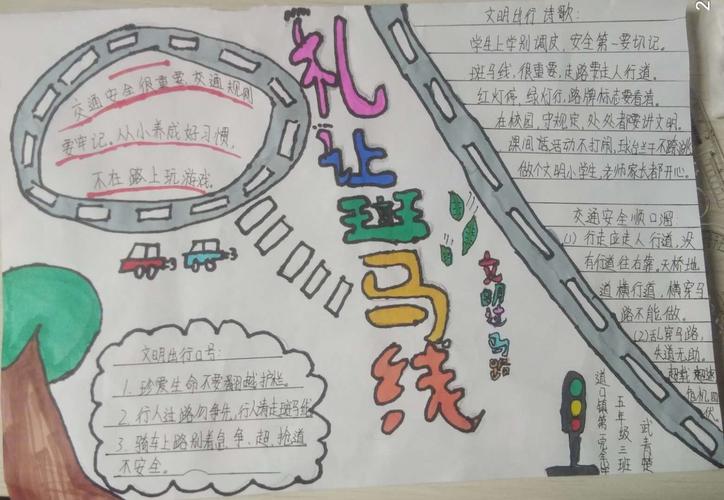 礼让斑马线
交通安全很重要,交通规则
要牢记。从小养成好习惯,
不在路上玩游戏。
文明过马路
文明出行口号:
1、珍爱生命不要翻越护栏。
2、行人过路勿争先,行人请走斑马线
3、骑车上路别着急,争、超、抢道
不安全。
文明出行诗歌:
学生上学别调皮,安全第一要切记。
斑马线,很重要,走路要走人行道。
红灯停,绿灯行,路牌标志要看清。
在校园,守规定,处处都要讲文明。
课间活动不打闹,
做个文明小学生,老师家长都开心。
交通安全顺口溜
(1)行走应走人行道,没
有行道往右靠,天桥地
道横行道,横穿马
路不能做。
(2)乱穿马路,
失道无助。
超载超速
危机四
伏。
道口镇第一完全小
五年级三班
武青楚